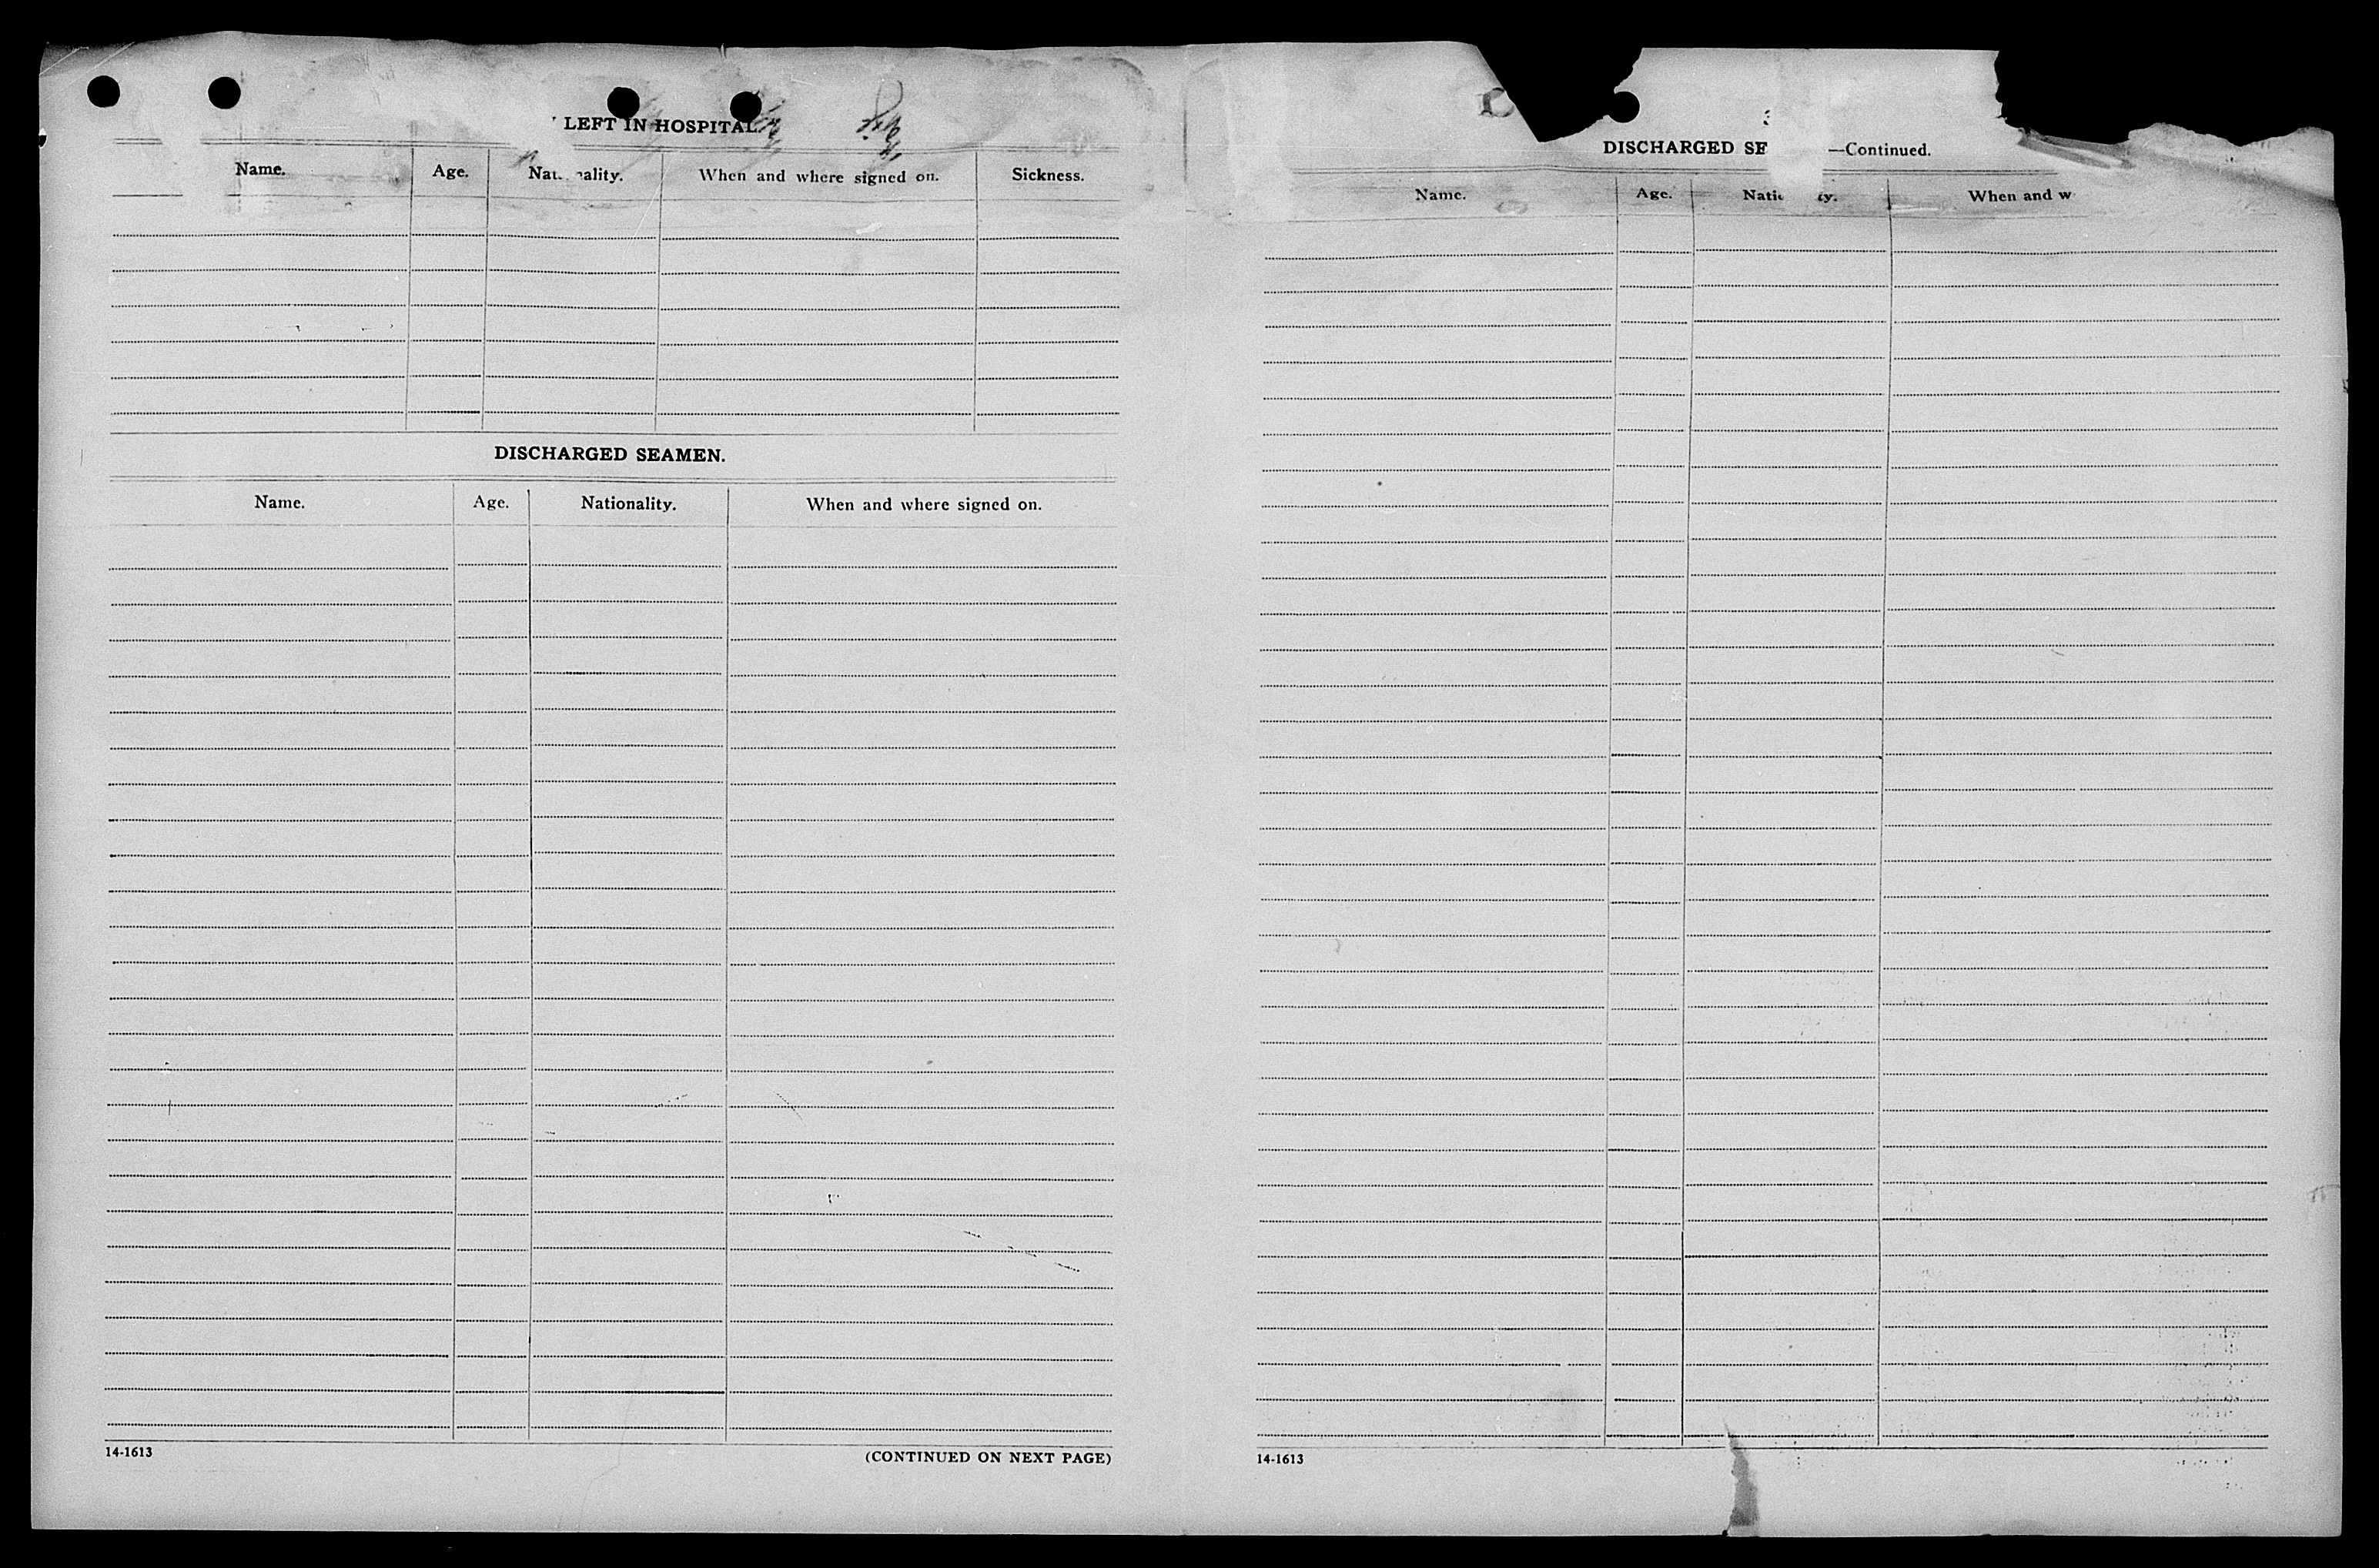 LEFT IN HOSPITAL.
Name. Age. Nat ality. When and where signed on. Sickness.
DISCHARGED SEAMEN.
Name. Age. Nationality. When and where signed on.
14-1613 (CONTINUED ON NEXT PAGE)
DISCHARGED SE —Continued.
Name. Age. Natio ty. When and w
14-1613